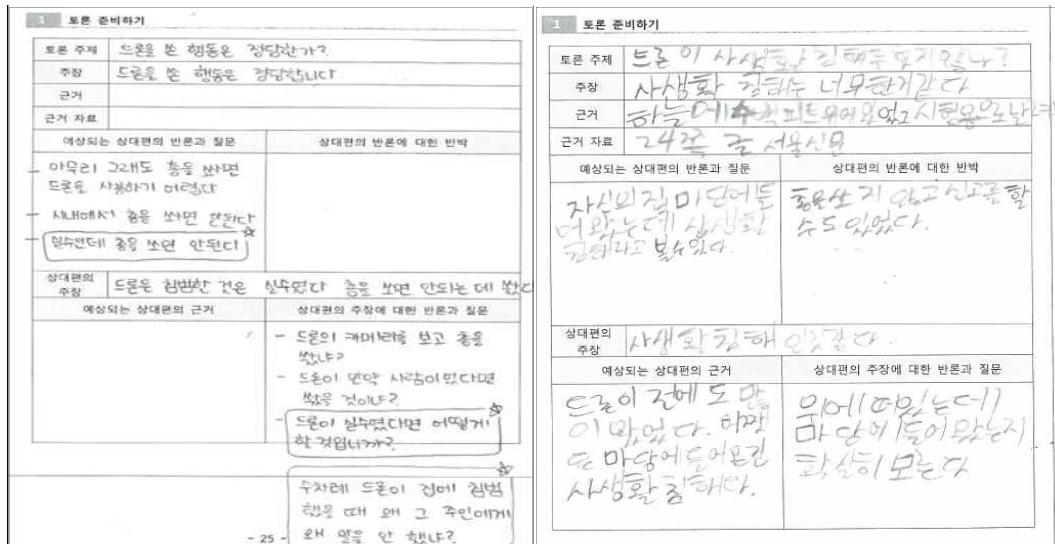 1 토론 준비하기
토론 주제 드론을 쏜 행동은 정당한가?
주장 드론을 쏜 행동은 정당합니다
근거
근거 자료
예상되는 상대편의 반론과 질문
상대편의 반론에 대한 반박
- 아무리 그래도 총을 쏘면
드론을 사용하기 어렵다
- 시내에서 총을 쏘면 안된다
- 실수인데 총을 쏘면 안된다
상대편의 주장 드론은 침범한 것은 실수였다 총을 쏘면 안되는 데 쐈다
예상되는 상대편의 근거
상대편의 주장에 대한 반론과 질문
- 드론의 카메라를 보고 총을
쐈냐?
- 드론이 만약 사람이었다면
쐈을 것이냐?
- 드론이 실수였다면 어떻게
할 것입니까?
수차례 드론이 집에 침범
했을 때 왜 그 주인에게
왜 말을 안 했냐?
- 25 -
1 토론 준비하기
토론 주제 드론이 사생활
주장 사생활 너무한거같다
근거 하늘에 백피트 위에 있었고 시험용으로
근거 자료 24쪽 글 서울신문
예상되는 상대편의 반론과 질문
상대편의 반론에 대한 반박
자신의 집 마당에 들
어왔는데
볼수있다.
총을쏘지 않고 신고를 할
수도 있었다.
상대편의 주장 사생활 침해
예상되는 상대편의 근거
상대편의 주장에 대한 반론과 질문
드론이 전에도 많
이 왔었다. 어쨌
든 마당에 들어온건
사생활 침해다.
위에 떠있는데
마당에 들어왔는지
확실히 모른다